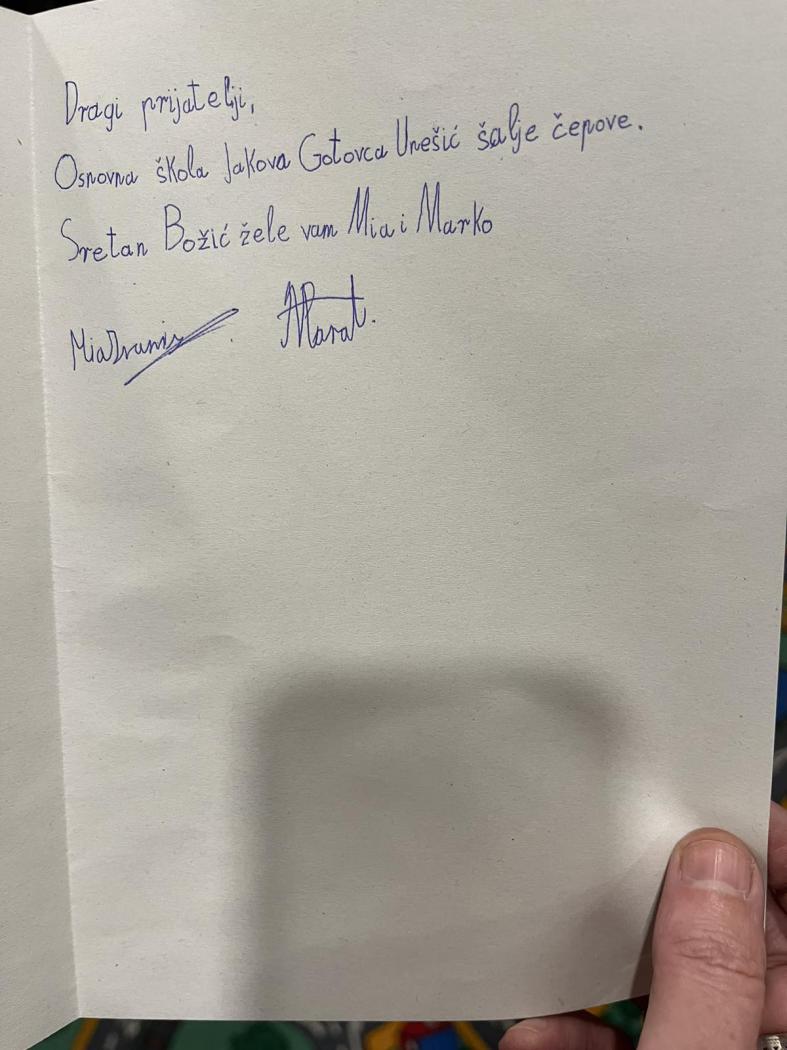 Dragi prijatelji,
Osnovna škola Jakova Gotovca Unešić šalje čepove.
Sretan Božić žele vam Mia i Marko
Mia